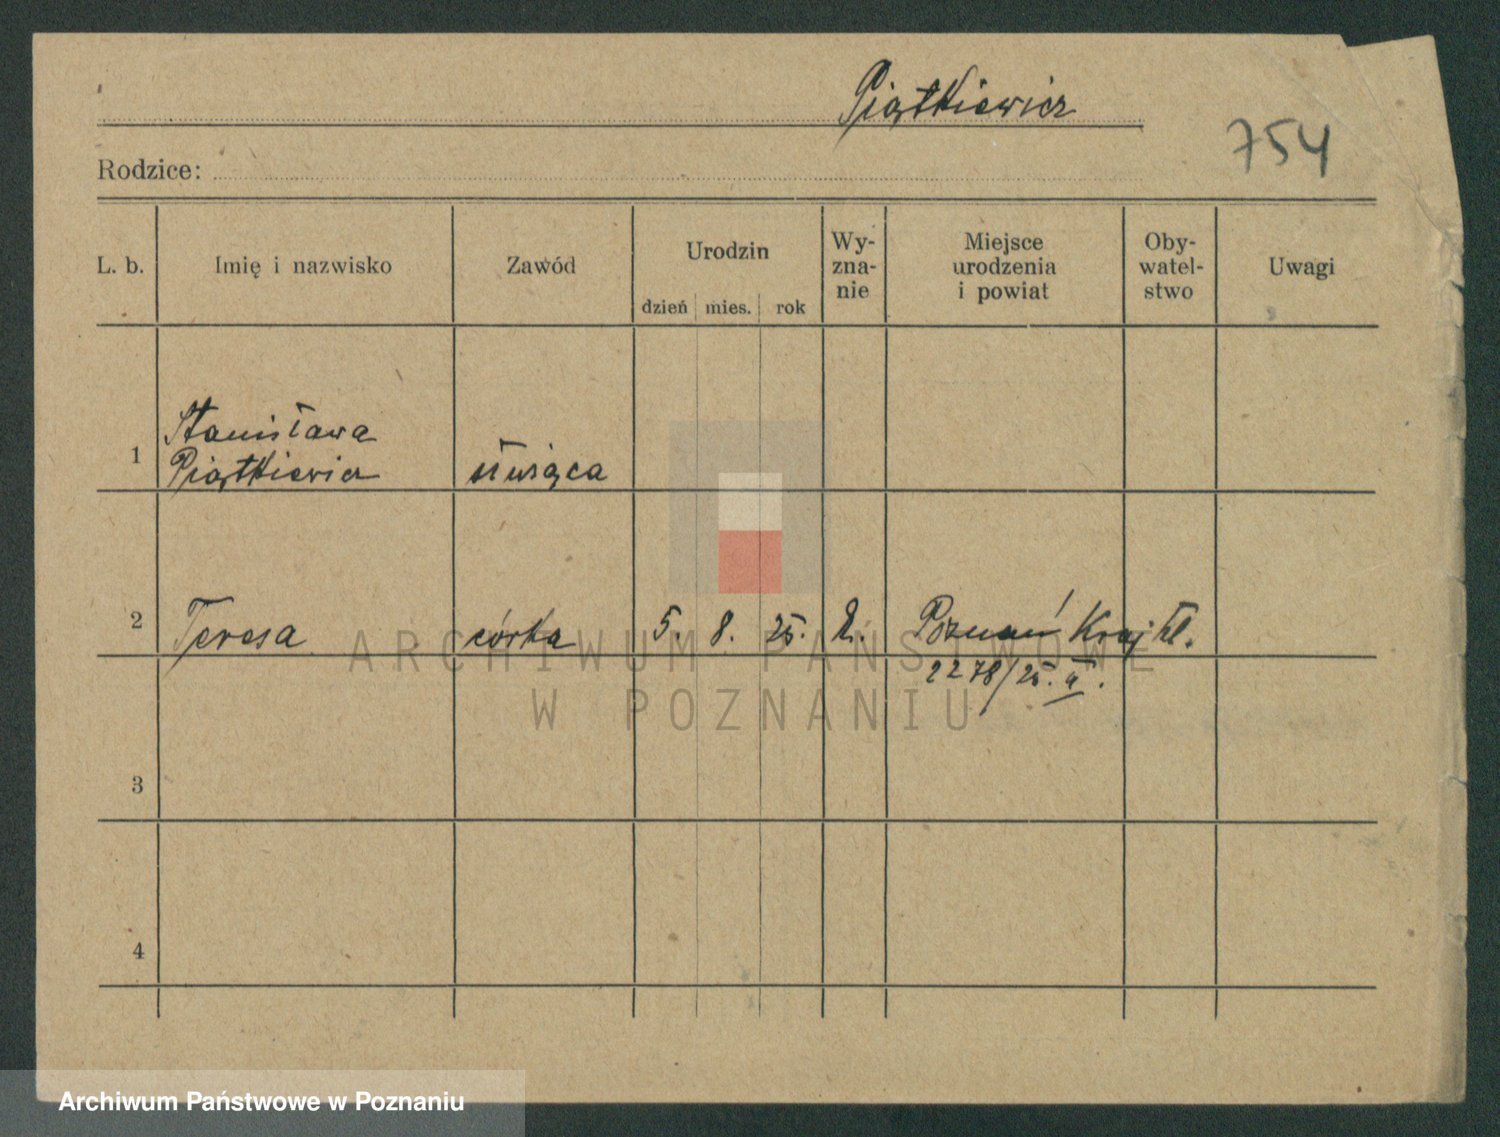 Piątkiewicz
754
Rodzice:
L. b. Imię i nazwisko Zawód Urodzin dzień mies. rok Wy-
zna-
nie Miejsce
urodzenia
i powiat Oby-
watel-
stwo Uwagi
1 Stanisława
Piątkiewicz służąca
2 Teresa córka 5. 8. 25. Poznań
2278/25.
3
4
ARCHIWUM PAŃSTWOWE
W POZNANIU
Archiwum Państwowe w Poznaniu